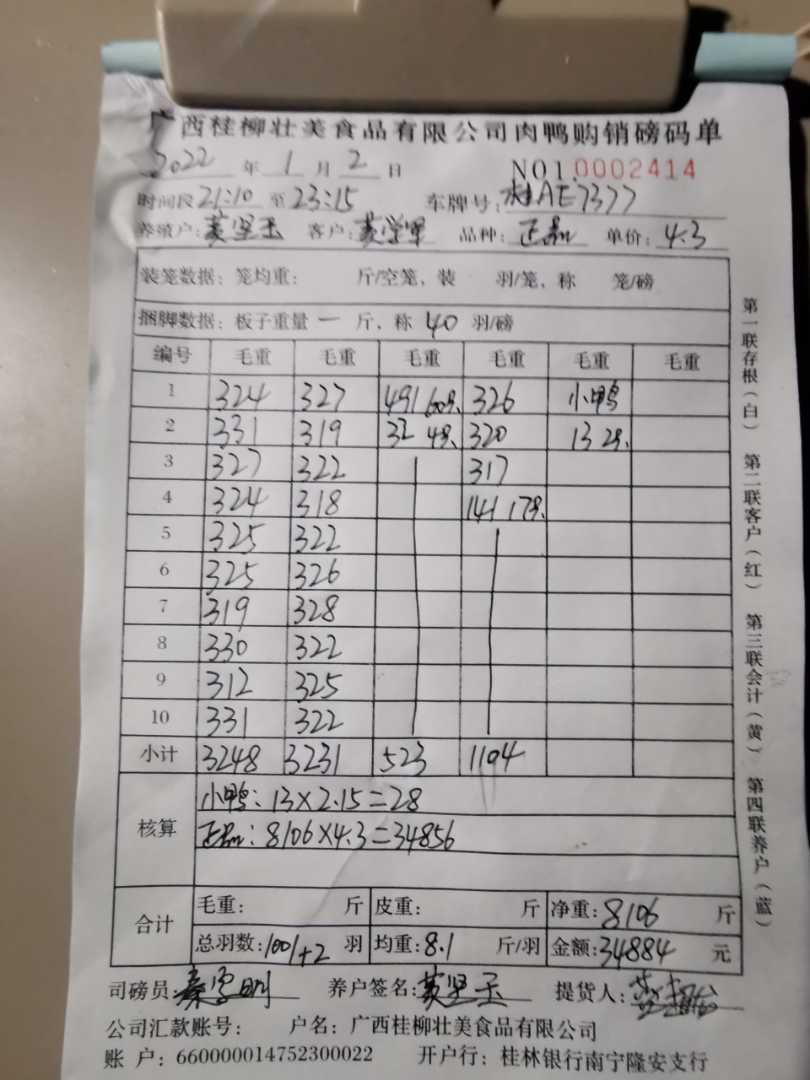 广西桂柳壮美食品有限公司肉鸭购销磅码单
2022 年 1 月 2 日 NO1.0002414
时间段 21:10 至 23:15 车牌号: 桂AE7377
养殖户: 黄坚玉 客户: 黄 品种: 正品 单价: 4.3
装笼数据: 笼均重: 斤/空笼、装 羽/笼、称 笼/磅
捆脚数据: 板子重量 一 斤、称 40 羽/磅
编号 毛重 毛重 毛重 毛重 毛重 毛重
1 324 327 491 60只 326 小鸭
2 331 319 32 4只 320 13 2只
3 327 322 317
4 324 318 141 17只
5 325 322
6 325 326
7 319 328
8 330 322
9 312 325
10 331 322
小计 3248 3231 523 1104
核算 小鸭: 13×2.15=28
正品: 8106×4.3=34856
合计 毛重: 斤 皮重: 斤 净重: 8106 斤
总羽数: 1001+2 羽 均重: 8.1 斤/羽 金额: 34884 元
司磅员: 秦 养户签名: 黄坚玉 提货人:
公司汇款账号: 户名: 广西桂柳壮美食品有限公司
账 户: 660000014752300022 开户行: 桂林银行南宁隆安支行
第一联存根(白) 第二联客户(红) 第三联会计(黄) 第四联养户(蓝)